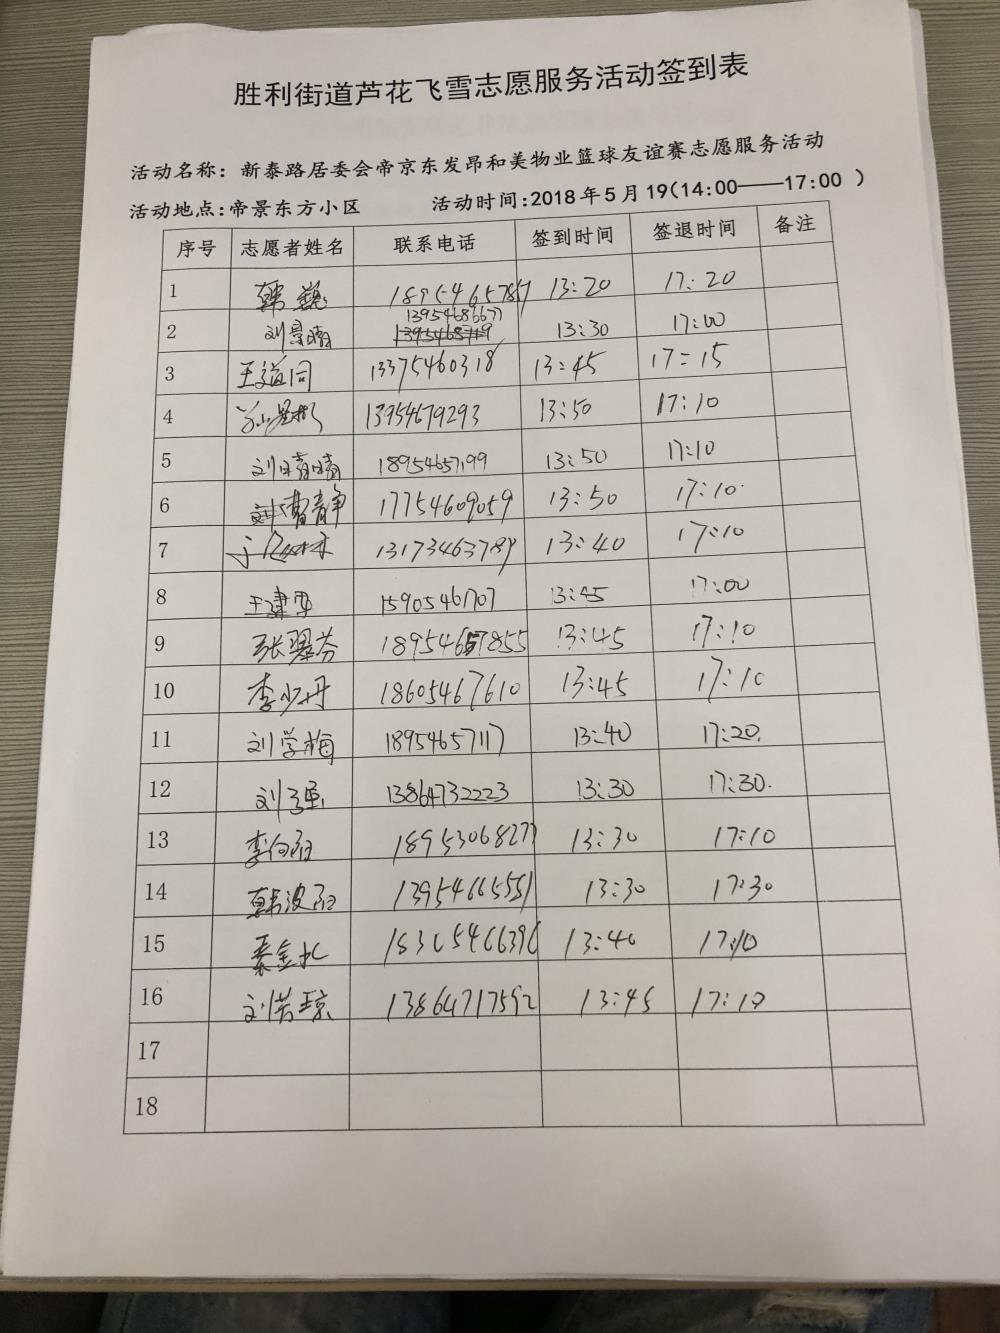 胜利街道芦花飞雪志愿服务活动签到表
活动名称：新泰路居委会帝京东发昂和美物业篮球友谊赛志愿服务活动
活动地点:帝景东方小区 活动时间:2018年5月19(14:00——17:00 )
序号 志愿者姓名 联系电话 签到时间 签退时间 备注
1 韩巍 18954657857 13:20 17:20
2 刘景晴 13954686677 13:30 17:00
3 王道同 13375460318 13:45 17:15
4 13954679293 13:50 17:10
5 刘晴晴 18954657199 13:50 17:10
6 曹静 17754609059 13:50 17:10
7 13:40 17:10
8 王建军 15905461707 13:45 17:00
9 张翠芬 18954657855 13:45 17:10
10 李少丹 18605467610 13:45 17:10
11 刘学梅 18954657117 13:40 17:20
12 刘强 13864732223 13:30 17:30
13 李向阳 18953068277 13:30 17:10
14 韩波阳 13954665551 13:30 17:30
15 秦金水 18305466396 13:40 17:10
16 刘芳琼 13864717592 13:45 17:10
17
18